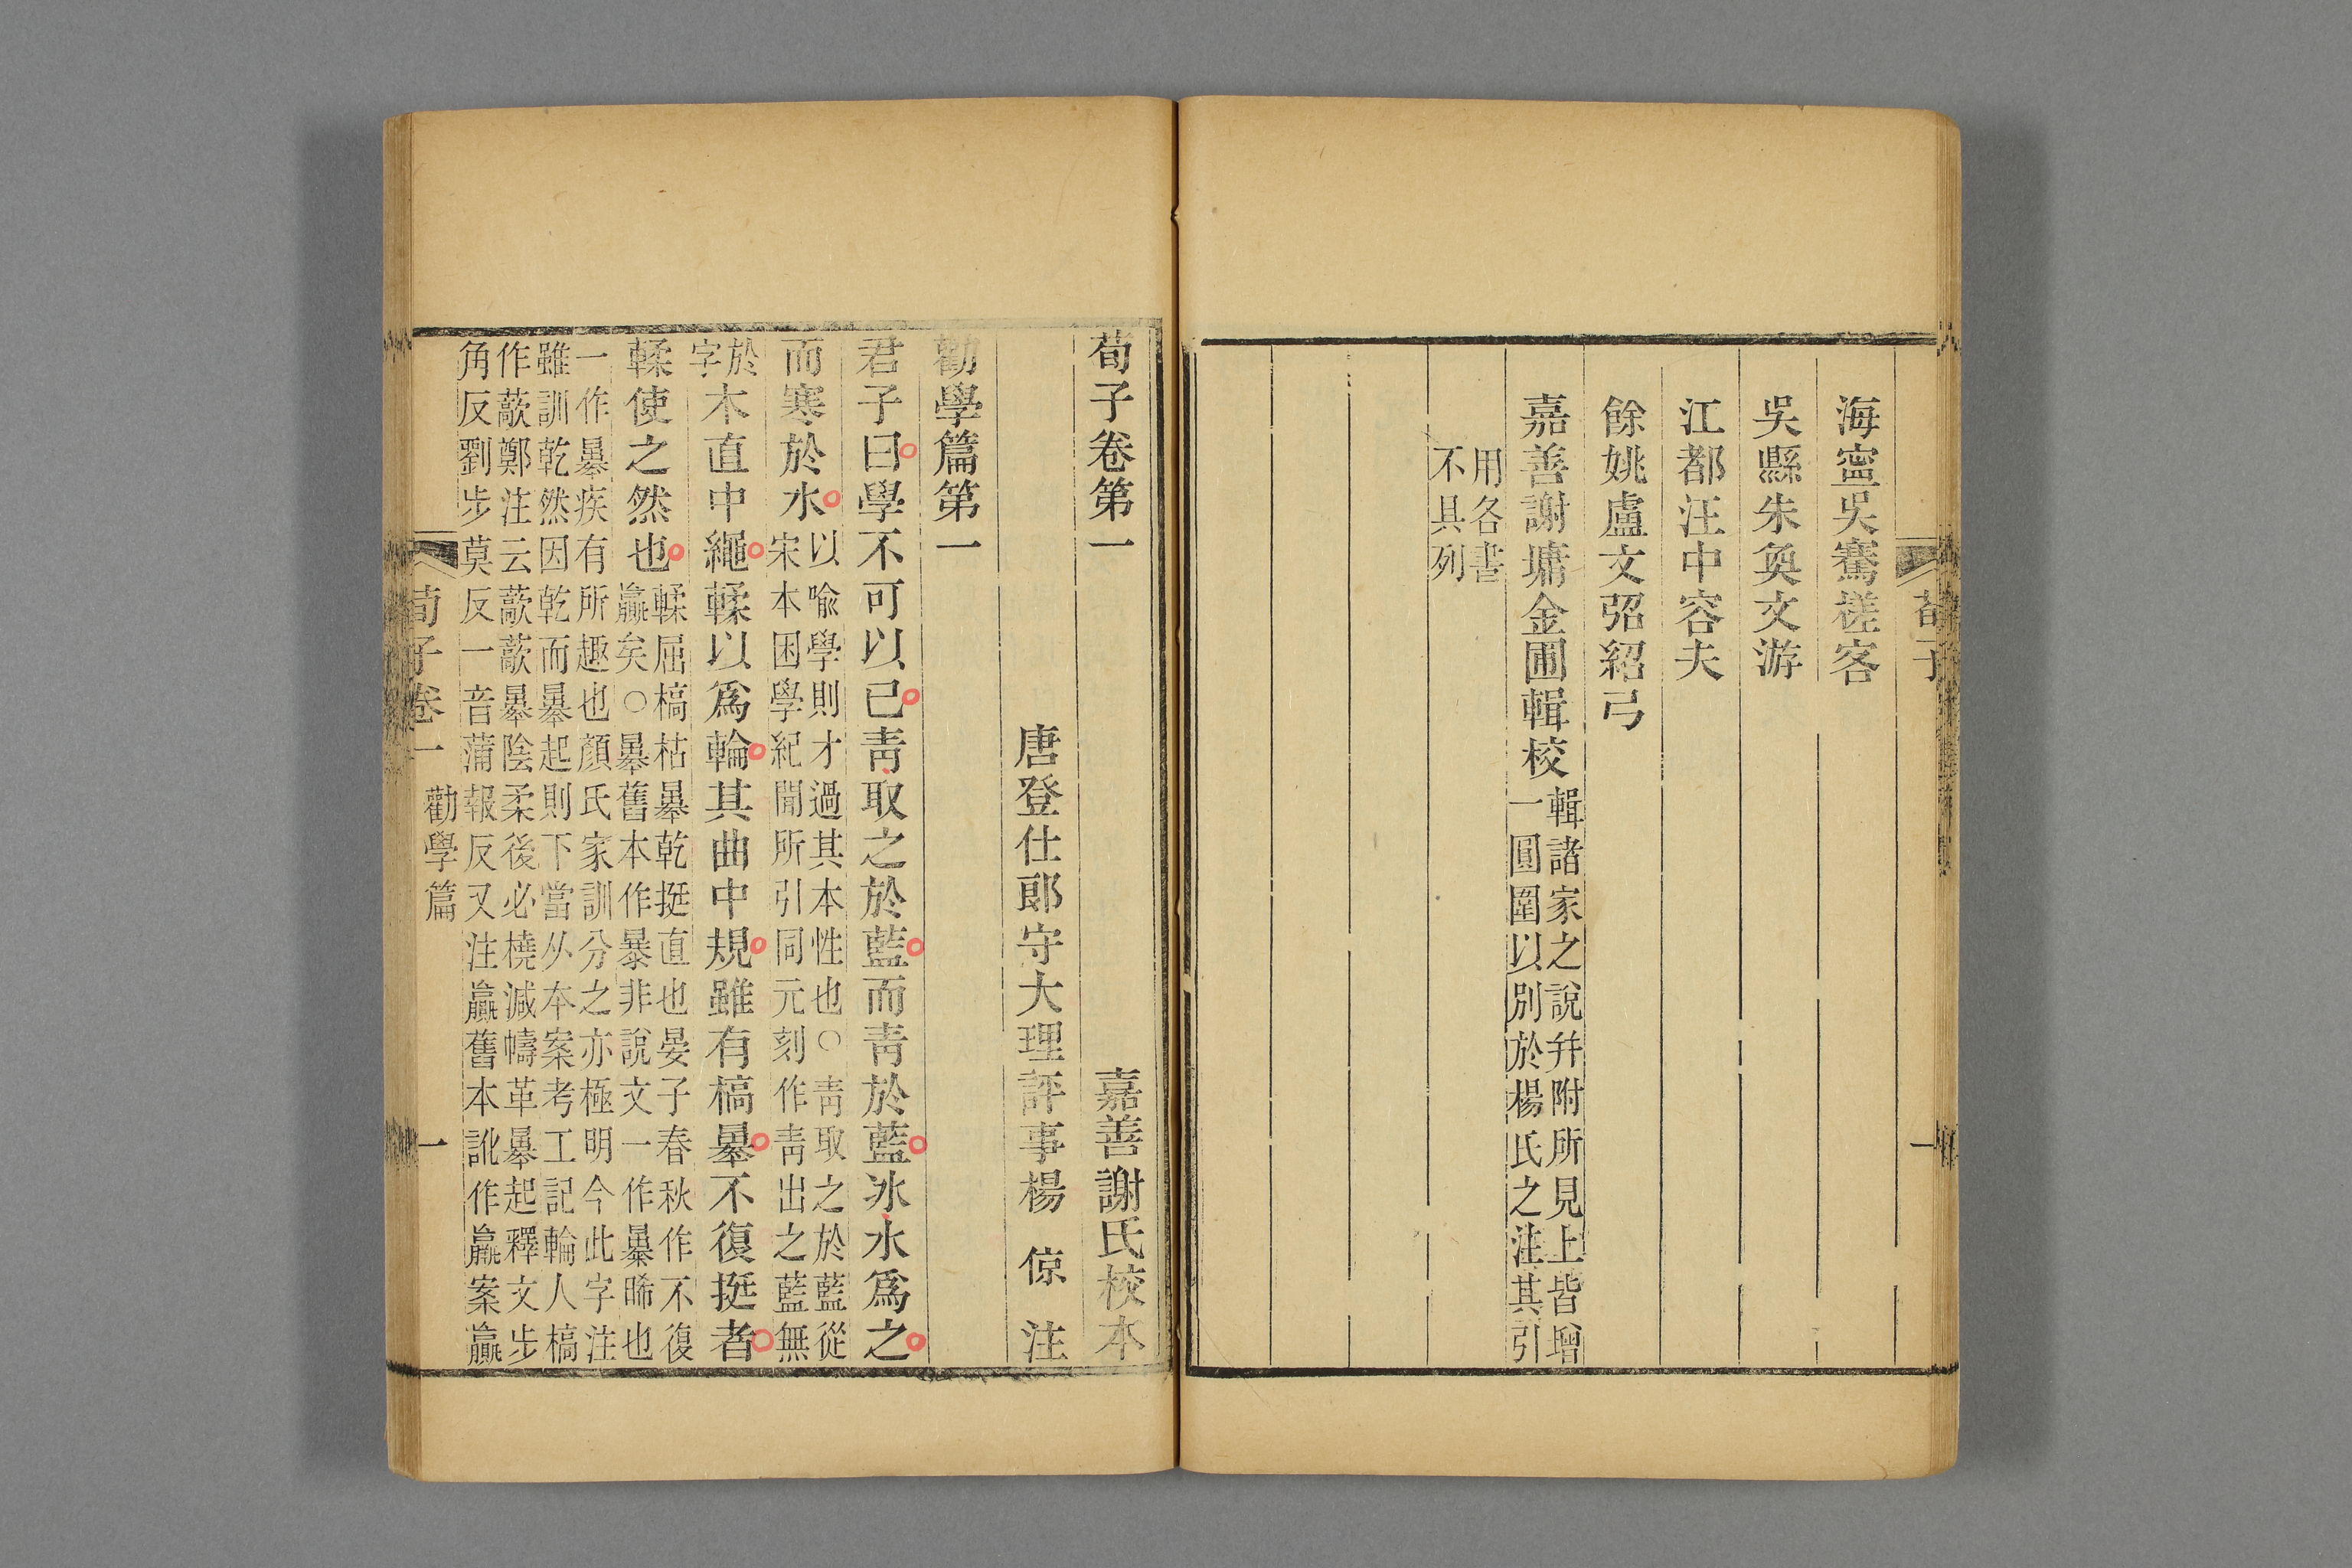 荀子
一
海寧吳騫槎客
吳縣朱奐文游
江都汪中容夫
餘姚盧文弨紹弓
嘉善謝墉金圃輯校
輯諸家之說并附所見上皆增
一圓圍以別於楊氏之注其引
用各書
不具列
荀子卷第一
嘉善謝氏校本
唐登仕郎守大理評事楊 倞 注
勸學篇第一
君子曰學不可以已青取之於藍而青於藍冰水爲之
而寒於水
以喻學則才過其本性也○青取之於藍從
宋本困學紀聞所引同元刻作青出之藍無
於
字
木直中繩輮以爲輪其曲中規雖有槁暴不復挺者
輮使之然也
輮屈槁枯暴乾挺直也晏子春秋作不復
贏矣○暴舊本作暴非說文一作㬥晞也
一作㬥疾有所趣也顏氏家訓分之亦極明今此字注
雖訓乾然因乾而暴起則下當从本案考工記輪人槁
作藃鄭注云藃藃暴陰柔後必橈減幬革暴起釋文步
角反劉步莫反一音蒲報反又注贏舊本訛作羸案贏
荀子卷一
勸學篇
一